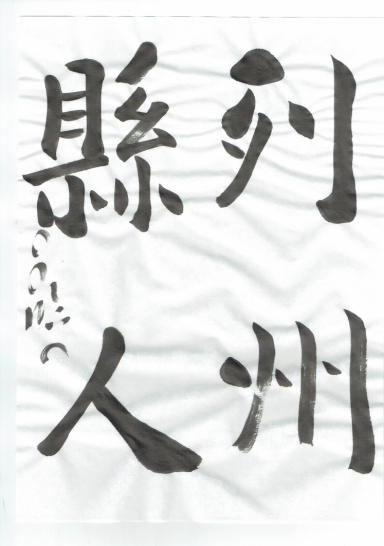 列州
縣人